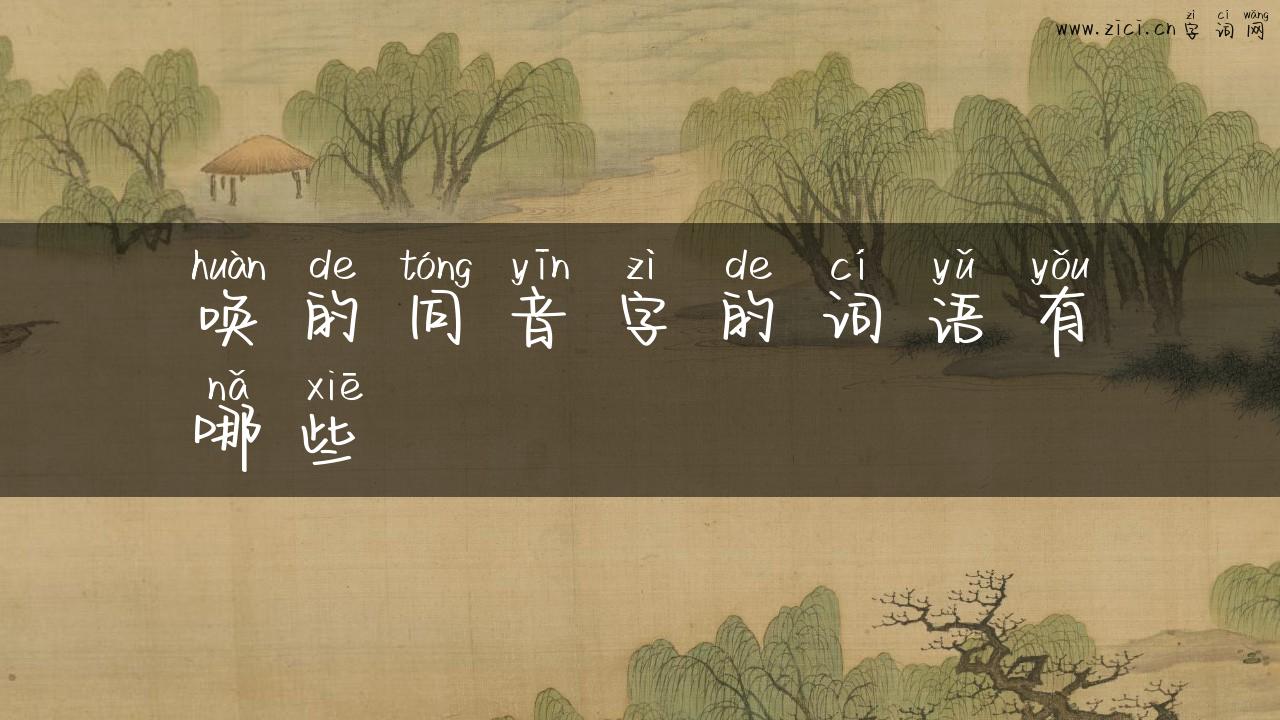 zì cí wǎng
www.zici.cn 字词网
huàn de tóng yīn zì de cí yǔ yǒu
唤的同音字的词语有
nǎ xiē
哪些